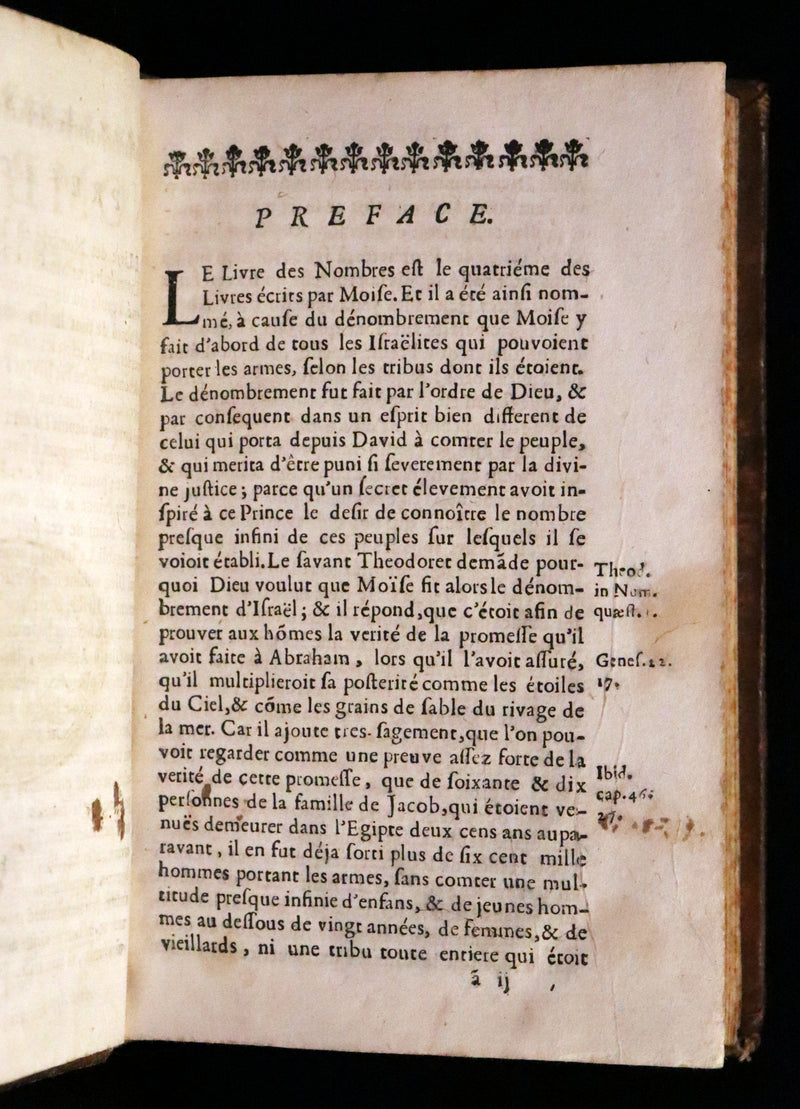 PREFACE.
LE Livre des Nombres eſt le quatriéme des
Livres écrits par Moiſe. Et il a été ainſi nom-
mé, à cauſe du dénombrement que Moiſe y
fait d'abord de tous les Iſraëlites qui pouvoient
porter les armes, ſelon les tribus dont ils étoient.
Le dénombrement fut fait par l'ordre de Dieu, &
par conſequent dans un eſprit bien different de
celui qui porta depuis David à comter le peuple,
& qui merita d'être puni ſi ſeverement par la divi-
ne juſtice; parce qu'un ſecret élevement avoit in-
ſpiré à ce Prince le deſir de connoître le nombre
preſque infini de ces peuples ſur leſquels il ſe
voioit établi. Le ſavant Theodoret demãde pour-
quoi Dieu voulut que Moïſe fit alors le dénom-
brement d'Iſraël; & il répond, que c'étoit afin de
prouver aux hõmes la verité de la promeſſe qu'il
avoit faite à Abraham, lors qu'il l'avoit aſſuré,
qu'il multiplieroit ſa poſterité comme les étoiles
du Ciel, & cõme les grains de ſable du rivage de
la mer. Car il ajoute tres-ſagement, que l'on pou-
voit regarder comme une preuve aſſez forte de la
verité de cette promeſſe, que de ſoixante & dix
perſonnes de la famille de Jacob, qui étoient ve-
nuës demeurer dans l'Egipte deux cens ans aupa-
ravant, il en fut déja ſorti plus de ſix cent mille
hommes portant les armes, ſans comter une mul-
titude preſque infinie d'enfans, & de jeunes hom-
mes au deſſous de vingt années, de femmes, & de
vieillards, ni une tribu toute entiere qui étoit
ã ij
Theod.
in Num.
quæſt. 1.
Geneſ. 22.
17.
Ibid.
cap. 46.
27.